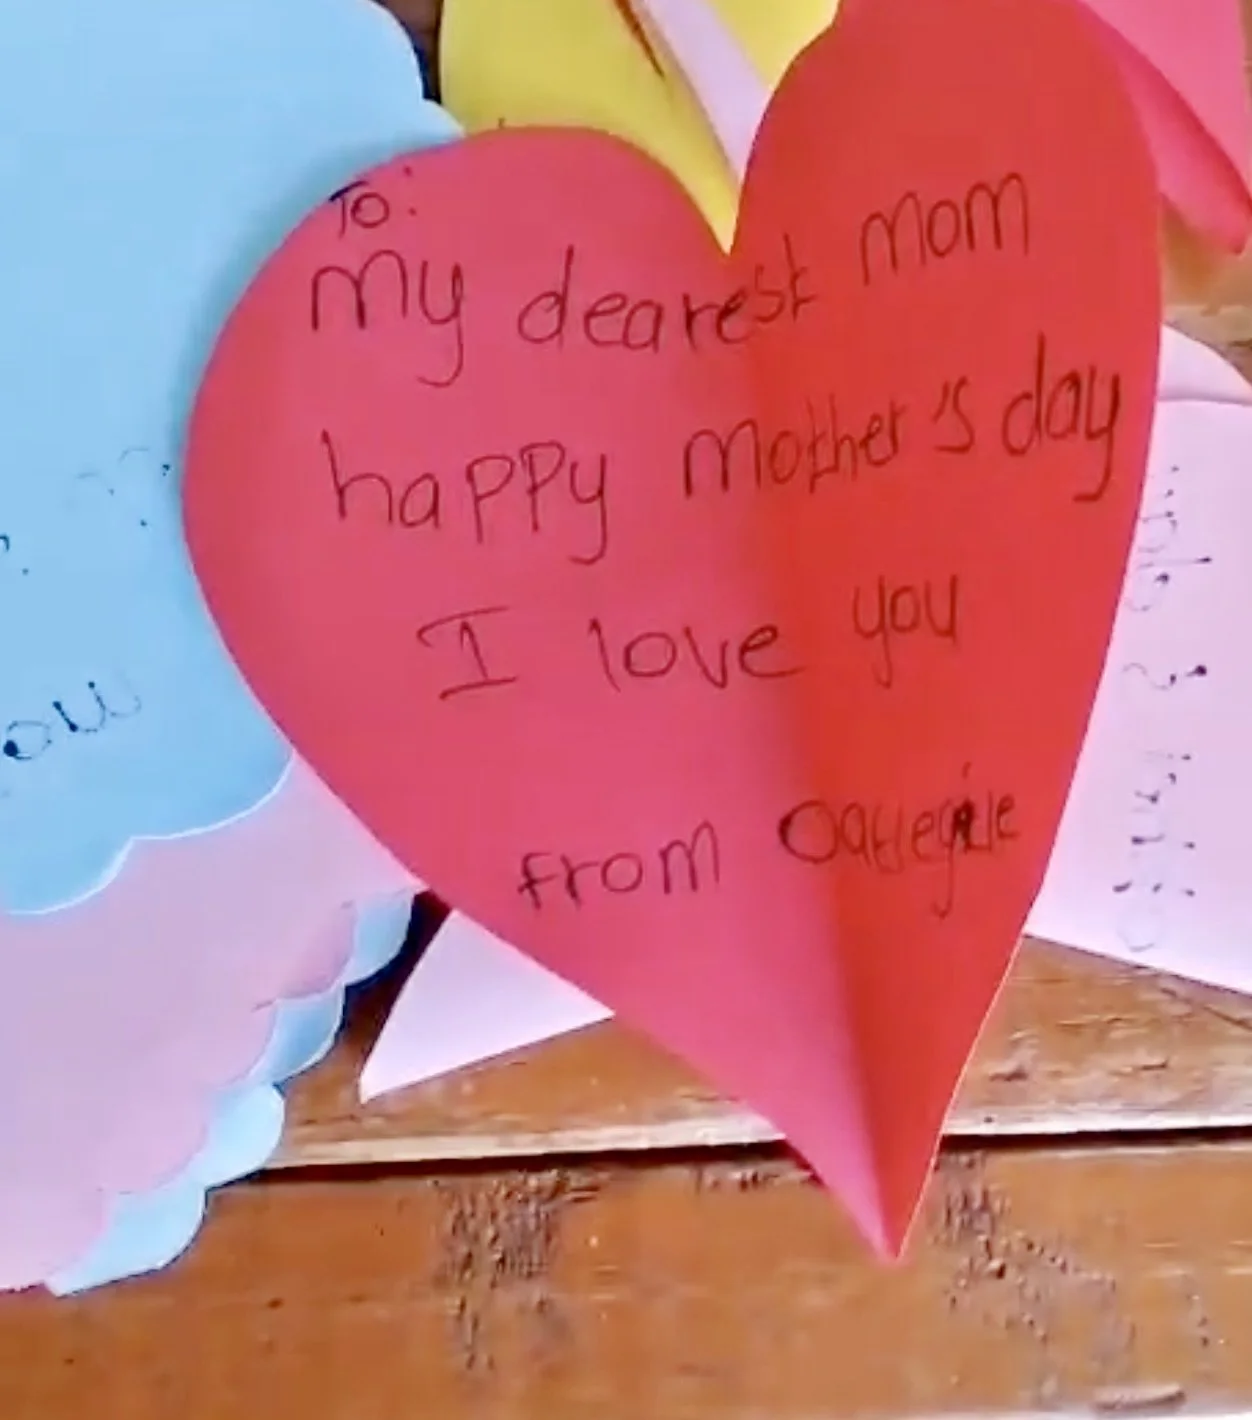 To:
My dearest mom
happy mother's day
I love you
from
ow